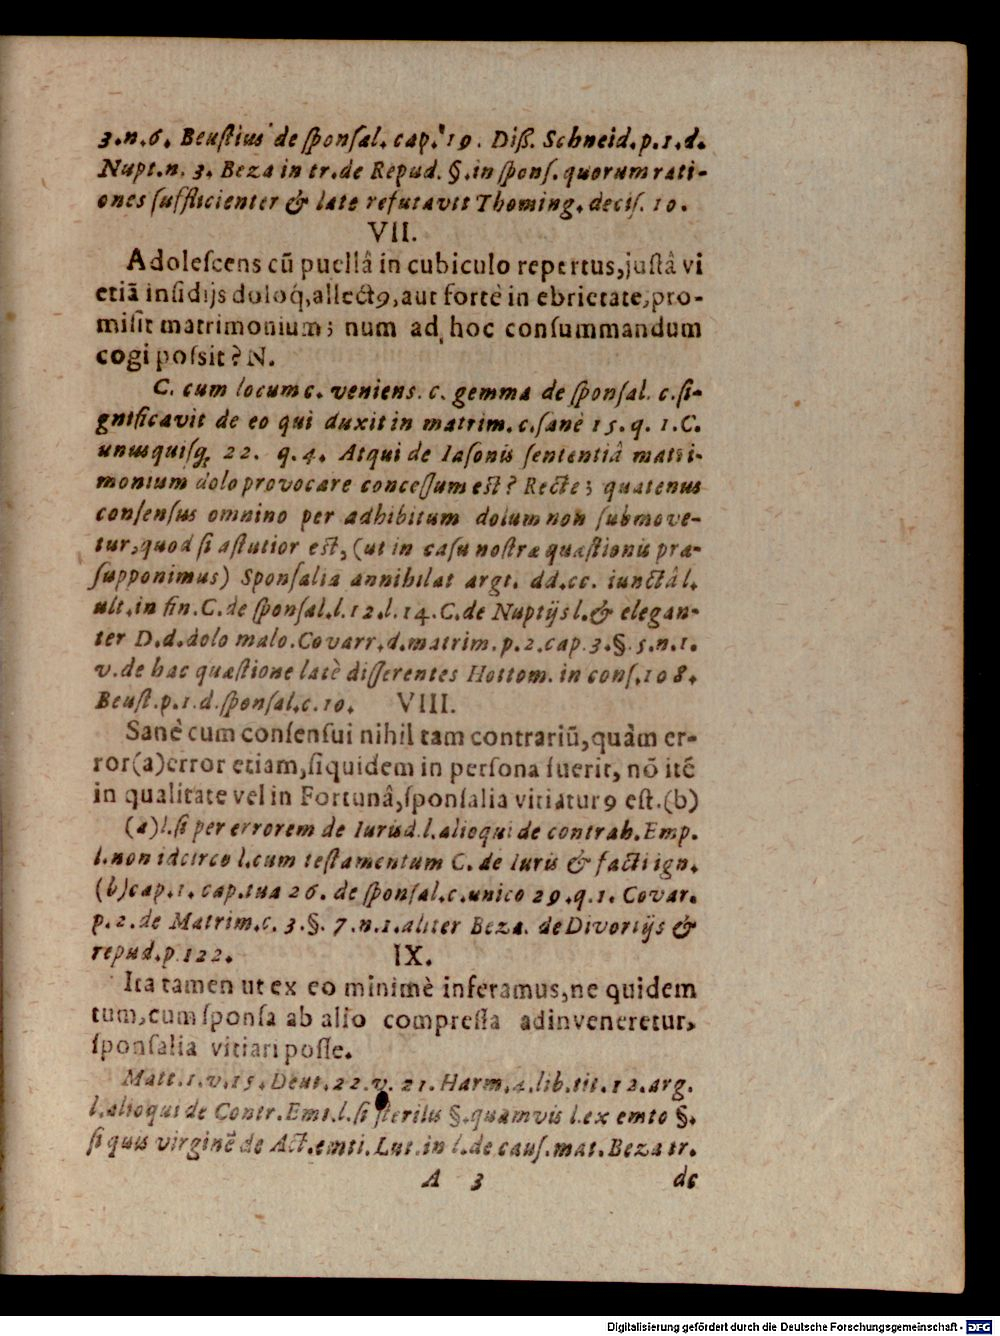 3.n.6. Beuſtius de ſponſal. cap. 19. Diß. Schneid.p.1.d.
Nupt.n. 3. Beza in tr.de Repud. §.in ſponſ. quorum rati-
ones ſufficienter & late refutavit Thoming. deciſ. 10.
VII.
Adoleſcens cū puellâ in cubiculo repertus,juſtâ vi
etiā inſidijs doloq́,allect9,aut fortè in ebrietate,pro-
miſit matrimonium; num ad hoc conſummandum
cogi poſsit? N.
C. cum locum c. veniens. c. gemma de ſponſal. c.ſi-
gnificavit de eo qui duxit in matrim. c.ſanè 15. q. 1.C.
unusquiſq; 22. q. 4. Atqui de Iaſonis ſententiâ matri-
monium dolo provocare conceſſum eſt? Rectè; quatenus
conſenſus omnino per adhibitum dolum non ſubmove-
tur,quod ſi aſtutior eſt, (ut in caſu noſtræ quæſtionis præ-
ſupponimus) Sponſalia annihilat argt. dd.cc. iunctâ l.
ult.in fin. C.de ſponſal.l.12.l.14.C.de Nuptijs l.& elegan-
ter D.d.dolo malo.Covarr.d.matrim.p.2.cap.3.§.5.n.1.
v.de hac quæſtione latè diſſerentes Hottom. in conſ.108.
Beuſt.p.1.d.ſponſal.c.10. VIII.
Sanè cum conſenſui nihil tam contrariū,quàm er-
ror(a)error etiam,ſiquidem in perſona fuerit, nō itē
in qualitate vel in Fortunâ,ſponſalia vitiatur9 eſt.(b)
(a)l.ſi per errorem de Iurisd.l.alioqui de contrah.Emp.
l.non idcirco l.cum teſtamentum C. de Iuris & facti ign.
(b)cap.1. cap.tua 26. de ſponſal.c.unico 29.q.1. Covar.
p.2.de Matrim.c. 3.§. 7.n.1.aliter Beza. de Divortijs &
repud.p.122. IX.
Ita tamen ut ex eo minimè inferamus,ne quidem
tum,cum ſponſa ab alio compreſſa adinveneretur,
ſponſalia vitiari poſſe.
Matt.1.v.15.Deut.22.v. 21.Harm.4.lib.tit.12.arg.
l.alioqui de Contr.Emt.l.ſi ſterilis §.quamvis l.ex emto §.
ſi quis virginē de Act.emti.Lut.in l.de cauſ.mat.Beza tr.
A 3 de
Digitalisierung gefördert durch die Deutsche Forschungsgemeinschaft - DFG